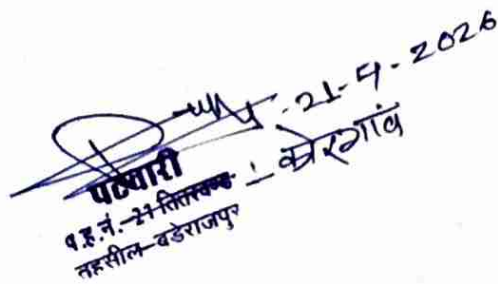 21-4-2026
पटवारी
प.ह.नं.-27 तितरवण्ड - कोरगांव
तहसील-बडेराजपुर